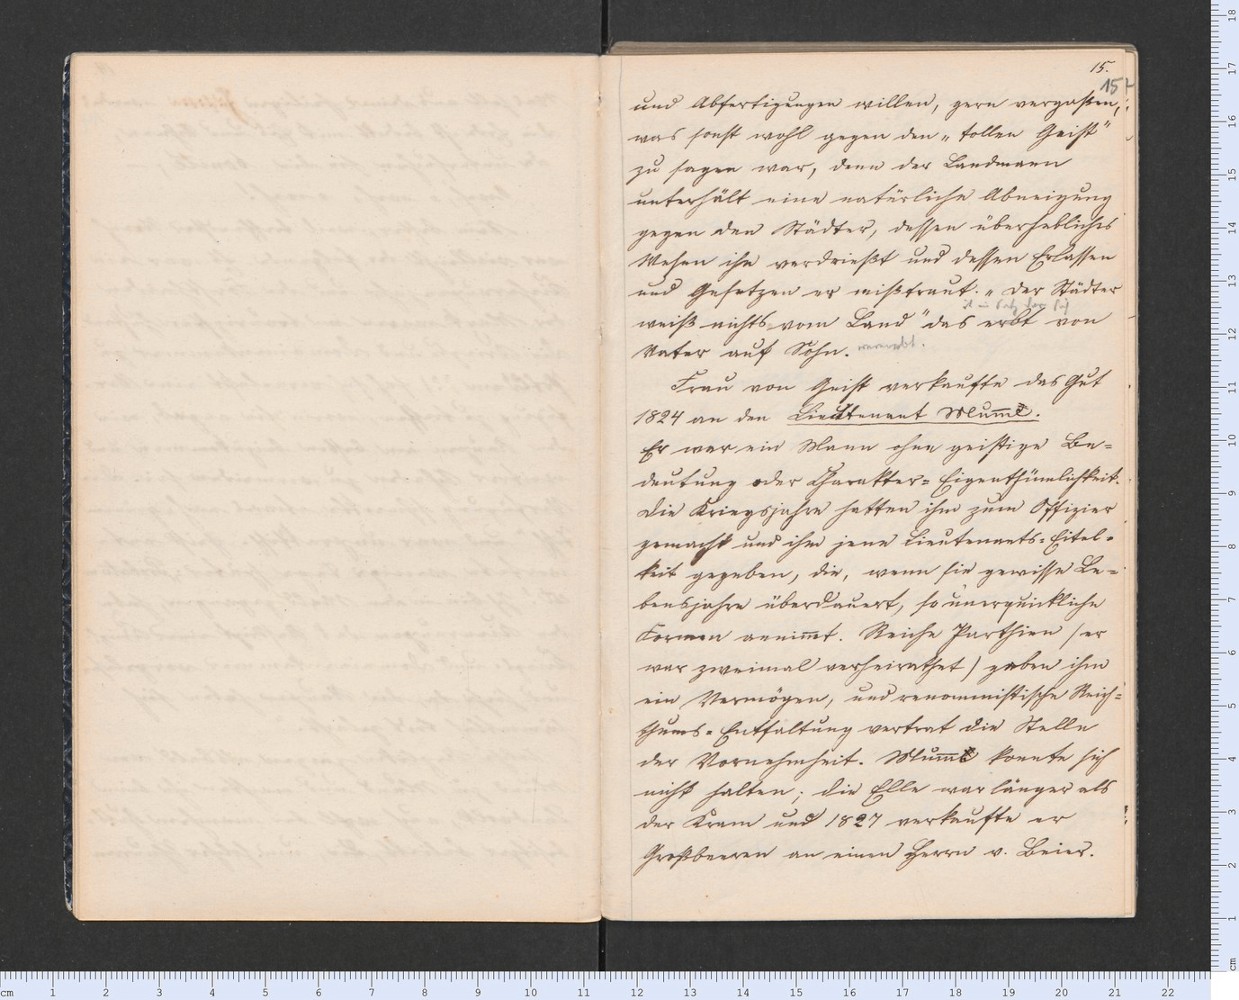 15.
15
und Abfertigungen willen, gern vergaßen,
was sonst wohl gegen den „tollen Geist"
zu sagen war, denn der Landmann
unterhält eine natürliche Abneigung
gegen den Städter, dessen überhebliches
Wesen ihn verdrießt und dessen Erlassen
und Gesetzen er mißtraut. „Der Städter
weiß nichts vom Land" das erbt von
Vater auf Sohn.
Frau von Geist verkaufte das Gut
1824 an den Lieutenant Mumme.
Er war ein Mann ohne geistige Be=
deutung oder Charakter=Eigenthümlichkeit.
Die Kriegsjahre hatten ihn zum Offizier
gemacht und ihm jene Lieutenants=Eitel=
keit gegeben, die, wenn sie gewisse Le=
bensjahre überdauert, so unerquickliche
Formen annimmt. Reiche Parthien (er
war zweimal verheirathet) gaben ihm
ein Vermögen, und renommistische Reich=
thums=Entfaltung vertrat die Stelle
der Vornehmheit. Mumme konnte sich
nicht halten; die Elle war länger als
der Kram und 1827 verkaufte er
Großbeeren an einen Herrn v. Beier.